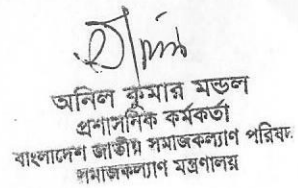 অনিল কুমার মন্ডল
প্রশাসনিক কর্মকর্তা
বাংলাদেশ জাতীয় সমাজকল্যাণ পরিষদ
সমাজকল্যাণ মন্ত্রণালয়